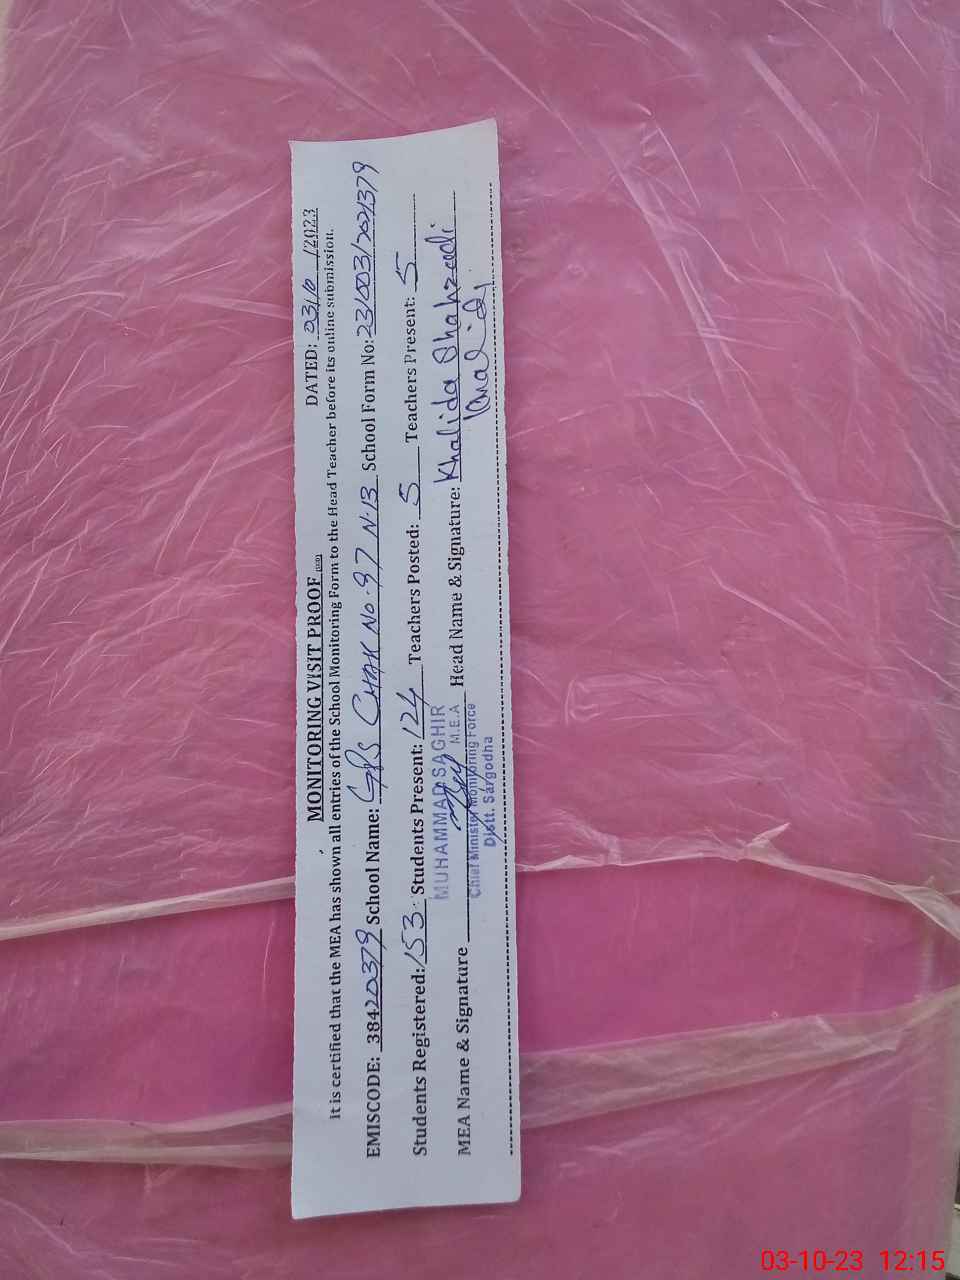 MONITORING VISIT PROOF
DATED: 03/10/2023
It is certified that the MEA has shown all entries of the School Monitoring Form to the Head Teacher before its online submission.
EMISCODE: 38420379 School Name: GPS CHAK No. 97 N.B School Form No: 23/003/2021379
Students Registered: 153 Students Present: 124 Teachers Posted: 5 Teachers Present: 5
MEA Name & Signature Head Name & Signature: Khalida Shahzadi
MUHAMMAD SAGHIR
M.E.A
Chief Minister Monitoring Force
Distt. Sargodha
Khalida
03-10-23 12:15